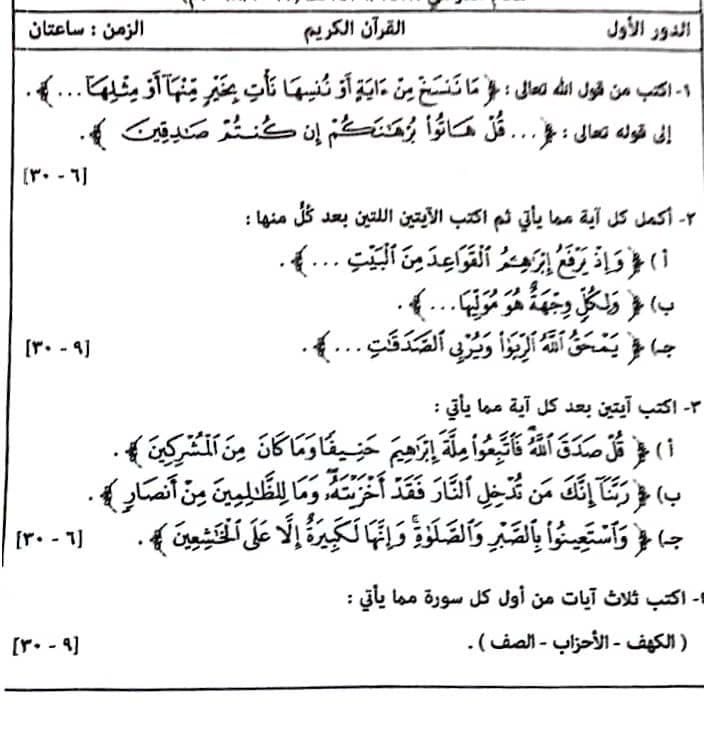 الدور الأول القرآن الكريم الزمن : ساعتان
١- اكتب من قول الله تعالى : ﴿ مَا نَنسَخْ مِنْ ءَايَةٍ أَوْ نُنسِهَا نَأْتِ بِخَيْرٍ مِّنْهَآ أَوْ مِثْلِهَآ ... ﴾ .
إلى قوله تعالى : ﴿ ... قُلْ هَاتُوا۟ بُرْهَـٰنَكُمْ إِن كُنتُمْ صَـٰدِقِينَ ﴾ .
[٦ - ٣٠]
٢- أكمل كل آية مما يأتي ثم اكتب الآيتين اللتين بعد كُلُّ منها :
أ ) ﴿ وَإِذْ يَرْفَعُ إِبْرَٰهِـۧمُ ٱلْقَوَاعِدَ مِنَ ٱلْبَيْتِ ... ﴾ .
ب) ﴿ وَلِكُلٍّ وِجْهَةٌ هُوَ مُوَلِّيهَا ... ﴾ .
جـ) ﴿ يَمْحَقُ ٱللَّهُ ٱلرِّبَوٰا۟ وَيُرْبِى ٱلصَّدَقَـٰتِ ... ﴾ . [٩ - ٣٠]
٣- اكتب آيتين بعد كل آية مما يأتي :
أ ) ﴿ قُلْ صَدَقَ ٱللَّهُ ۗ فَٱتَّبِعُوا۟ مِلَّةَ إِبْرَٰهِيمَ حَنِيفًا وَمَا كَانَ مِنَ ٱلْمُشْرِكِينَ ﴾ .
ب) ﴿ رَبَّنَآ إِنَّكَ مَن تُدْخِلِ ٱلنَّارَ فَقَدْ أَخْزَيْتَهُۥ ۖ وَمَا لِلظَّـٰلِمِينَ مِنْ أَنصَارٍ ﴾ .
جـ) ﴿ وَٱسْتَعِينُوا۟ بِٱلصَّبْرِ وَٱلصَّلَوٰةِ ۚ وَإِنَّهَا لَكَبِيرَةٌ إِلَّا عَلَى ٱلْخَـٰشِعِينَ ﴾ . [٦ - ٣٠]
- اكتب ثلاث آيات من أول كل سورة مما يأتي :
( الكهف - الأحزاب - الصف ) . [٩ - ٣٠]